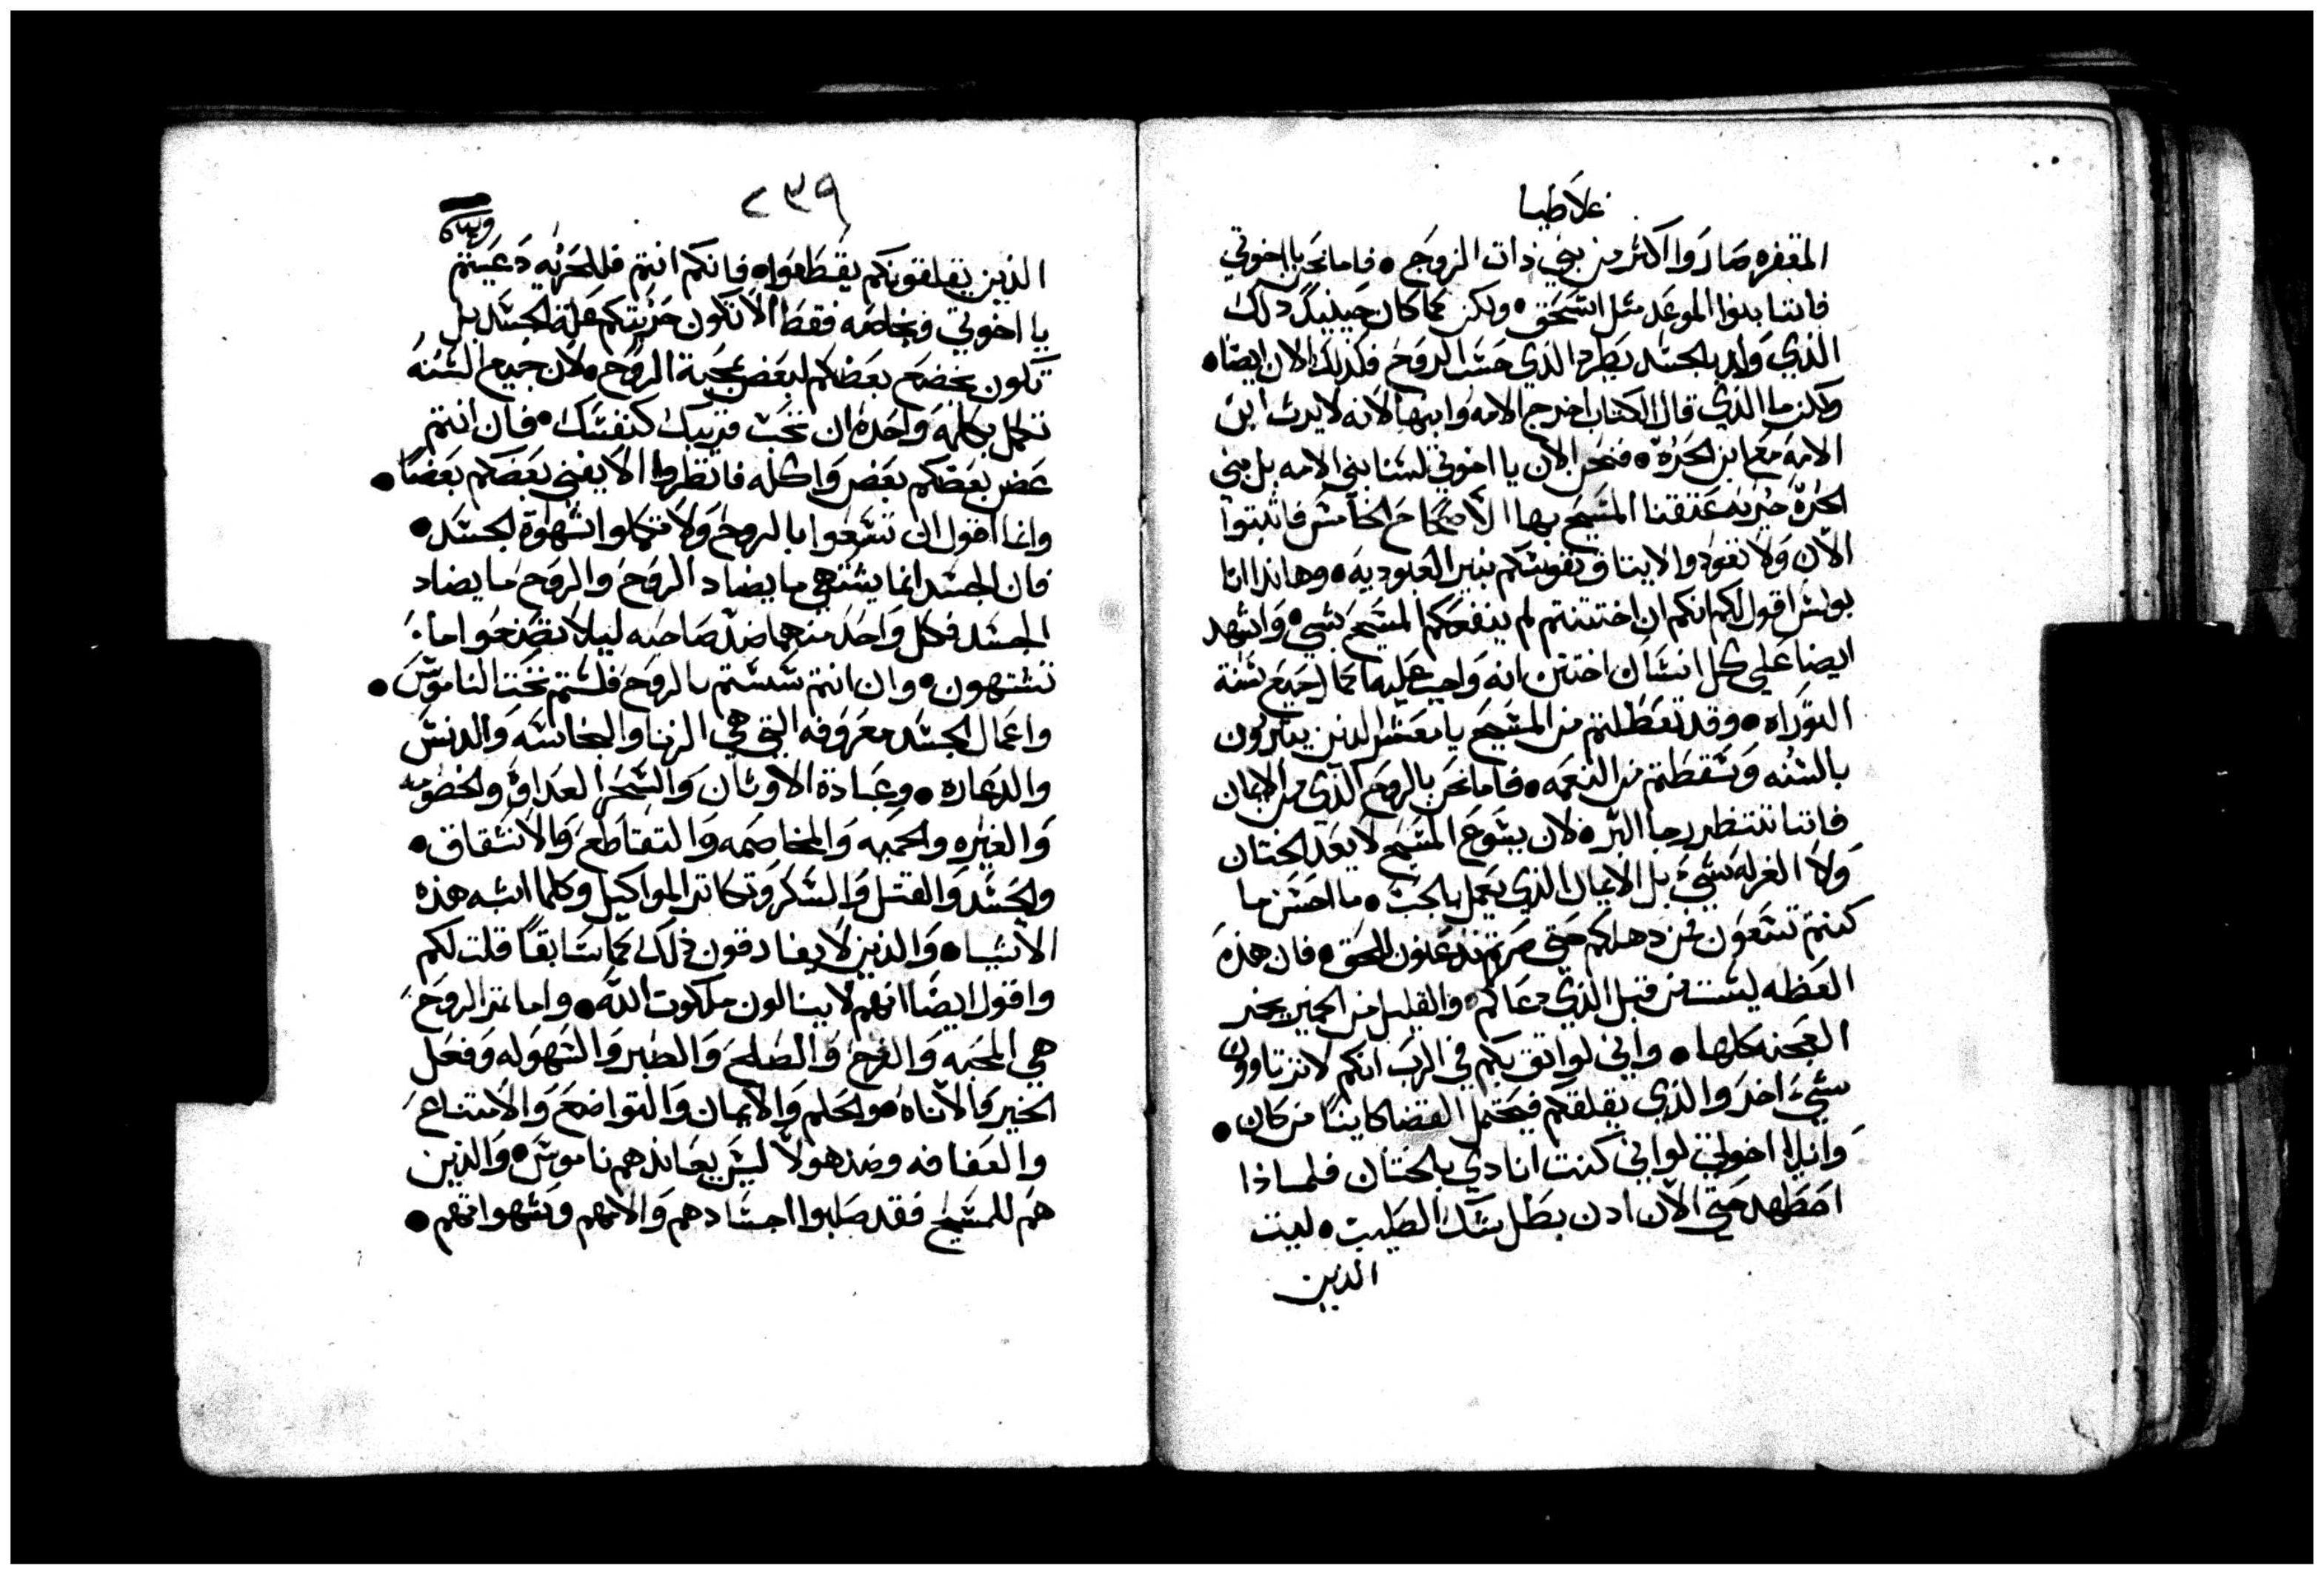 غلاطيا
المقفره صاروا اكثر من بني ذات الزوج • فاما نحن يا اخوتي
فاننا بنوا الموعد مثل اسحق • ولكن كما كان حينيد ذلك
الذي ولد بالجسد يطرد الذي حسب الروح فكذلك الان ايضا •
ولكن ما الذي قال الكتاب اخرج الامه وابنها لانه لا يرث ابن
الامة مع ابن الحرة • فنحن الان يا اخوتي لسنا بني الامه بل بني
الحرة حريه عتقنا المسيح بها الاصحاح الخامس فاثبتوا
الان ولا تعودوا الايثاق نفوسكم بنير العبوديه • وهاندا انا
بولس اقول لكم انكم ان اختتنتم لم ينفعكم المسيح بشي • واشهد
ايضا على كل انسان اختتن انه واجب عليه اكمال جميع سنة
التوراه • وقد تعطلتم من المسيح يا معشر الدين يتبررون
بالسنه وسقطتم من النعمه • فاما نحن بالروح الذي من الايمان
فاننا ننتظر رجا البر • لان يسوع المسيح لا يعد الختان
ولا الغرله بشيء بل الايمان الذي يعمل بالحب • ما احسن ما
كنتم تسعون فمن دهلكم حتى صرتم لا تدعنون للحق • فان هذه
العظه ليست من قبل الذي دعاكم • والقليل من الخمير يخمر
العجنه كلها • واني لواثق بكم في الرب انكم لا ترتاوون
شيء اخر والذي يقلقكم فيحتمل القضا كاينا من كان •
وانا يا اخوتي لو اني كنت انادي بالختان فلماذا
اضطهد حتى الان ادن بطل شك الصليب • ليت
الدين
٢٣٩
الذين يقلقونكم يقطعوا • فانكم انتم فللحريه دعيتم
يا اخوتي وبخاصه فقط الا تكون حريتكم علة الجسد بل
تكون يخضع بعضكم لبعض بمحبة الروح • لان جميع السنه
تكمل بكلمة واحده ان تحب قريبك كنفسك • فان انتم
عض بعضكم بعض واكله فانظروا الا يفني بعضكم بعضا •
وانا اقول ان تسعوا بالروح ولا تكملوا شهوة الجسد •
فان الجسد انما يشتهي ما يضاد الروح والروح ما يضاد
الجسد فكل واحد منهما ضد صاحبه ليلا تصنعوا ما
تشتهون • وان انتم سستم بالروح فلستم تحت الناموس •
واعمال الجسد معروفه التي هي الزنا والنجاسه والدنس
والدعاره • وعبادة الاوثان والسحر العداوه والخصومه
والغيره والحميه والمخاصمه والتقاطع والانشقاق •
والحسد والقتل والسكر وتكاتر المواكيل وكلما اشبه هذه
الاشيا • والدين لا يفارقون ذلك كما سابقا قلت لكم
واقول ايضا انهم لا ينالون ملكوت الله • واما ثمر الروح
هي المحبه والفرح والصلح والصبر والسهوله وفعل
الخير والاناه والحلم والايمان والتواضع والامتناع
والعفافه وضد هولا ليس يعاند هم ناموس • والدين
هم للمسيح فقد صلبوا اجسادهم والامهم وشهواتهم •